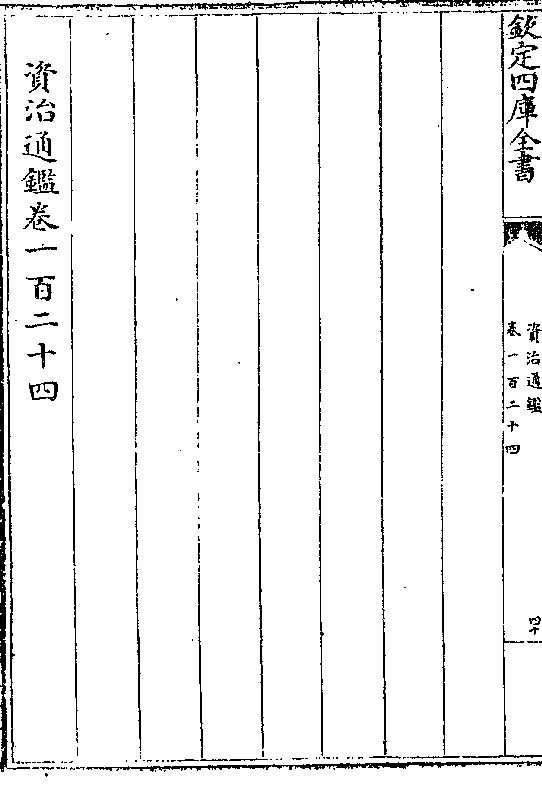 欽定四庫全書
資治通鑑
卷一百二十四
四十
資治通鑑卷一百二十四